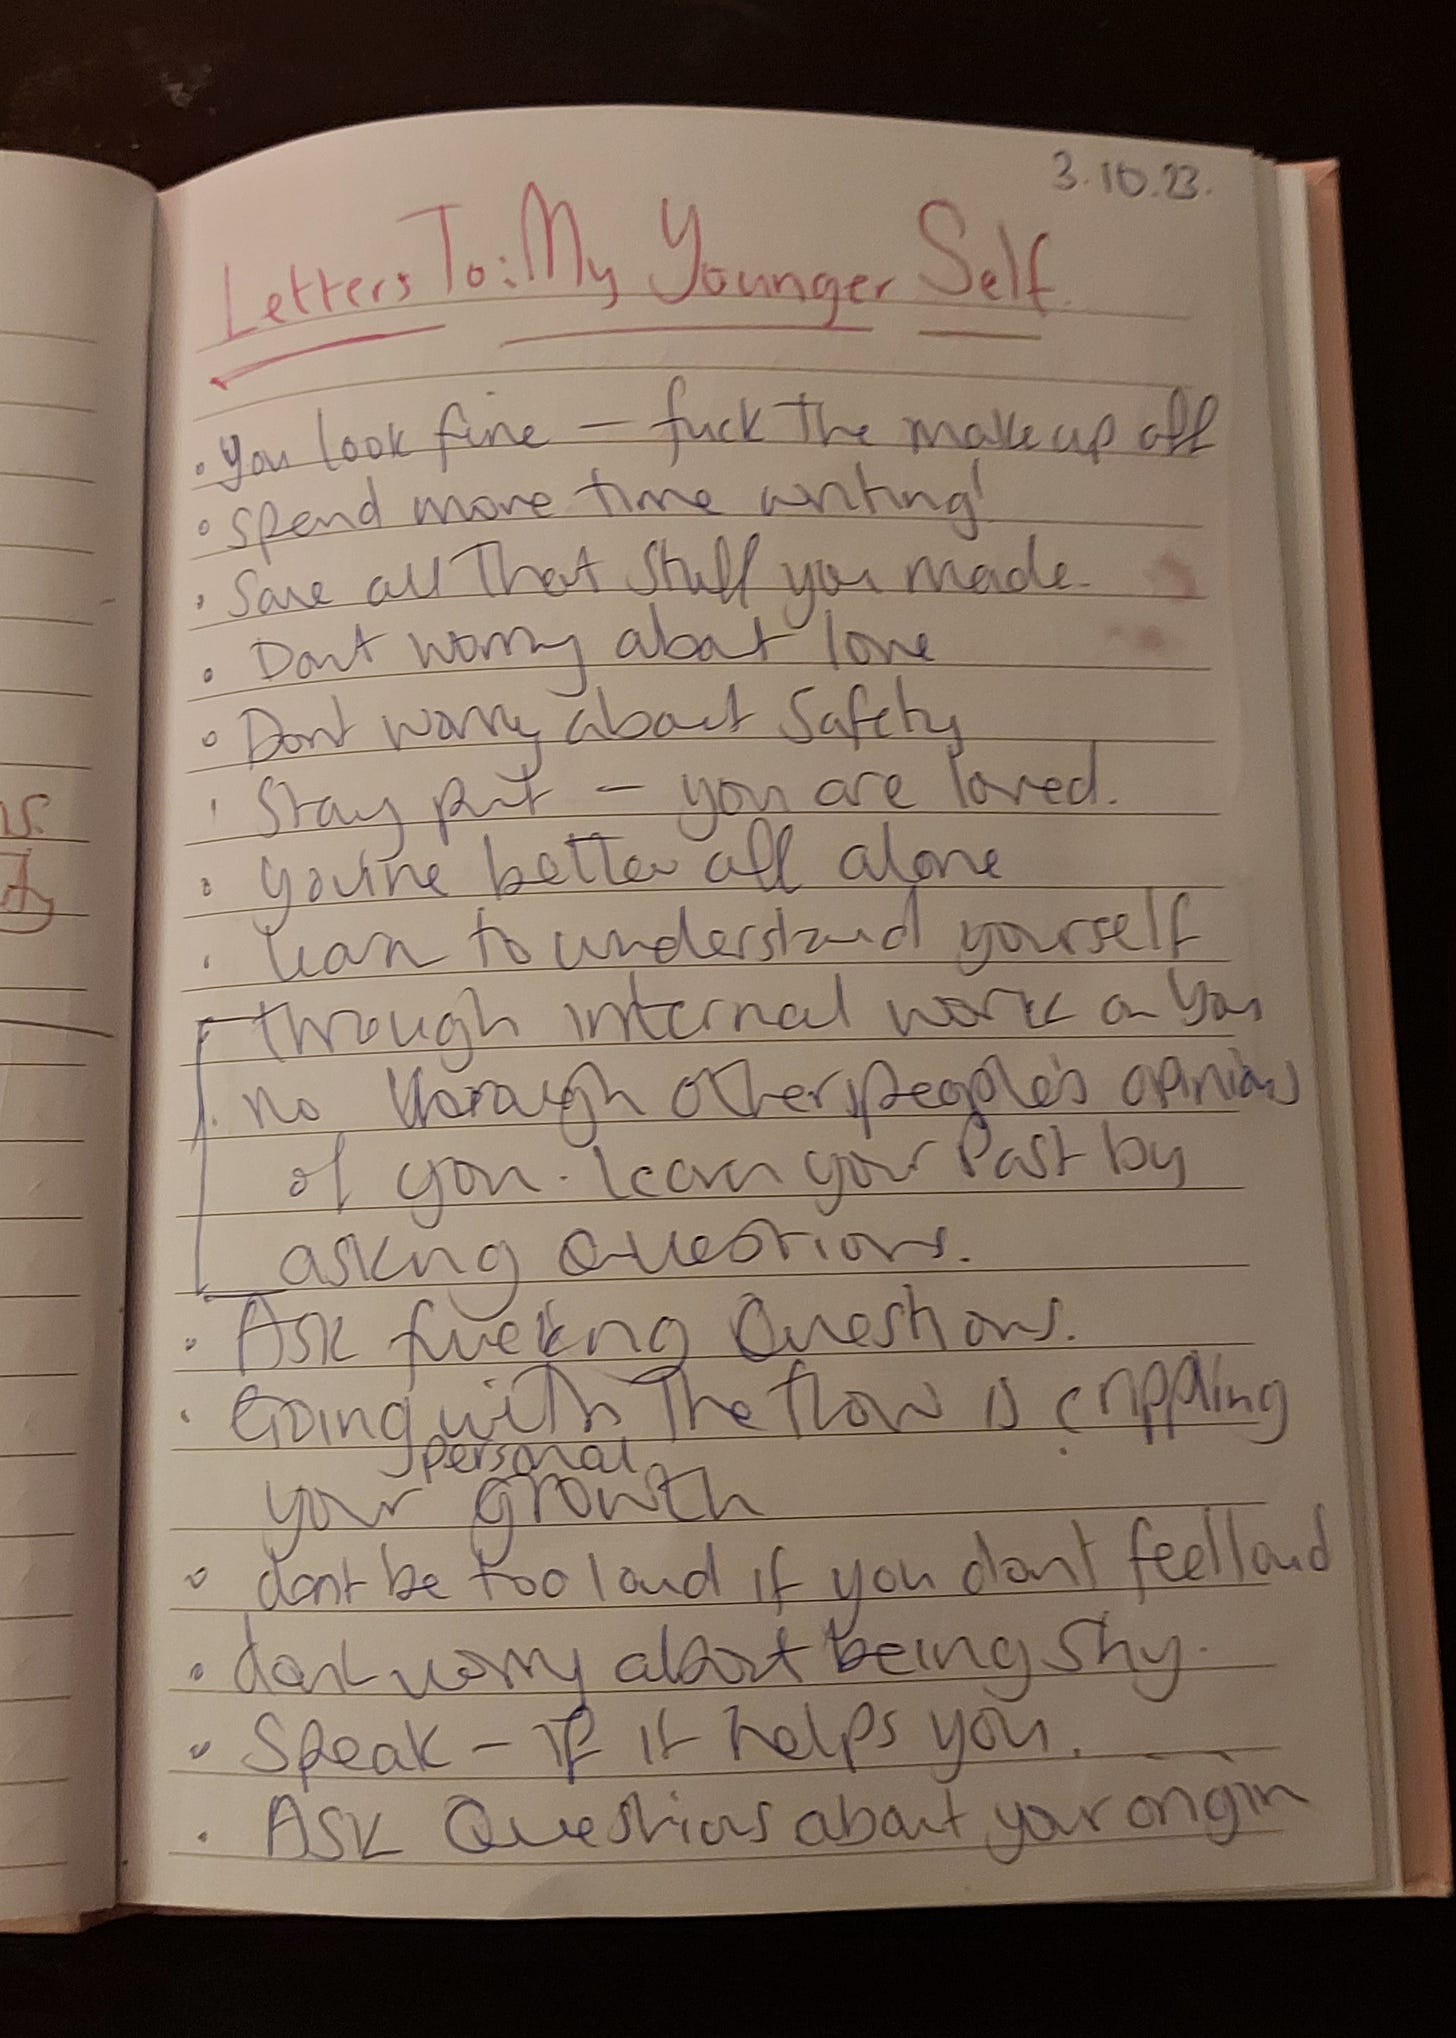 3.10.23.
Letters To: My Younger Self.
• you look fine – fuck the makeup off
• spend more time writing!
• Save all That Stuff you made.
• Dont worry about love
• Dont worry about Safety
• Stay put – you are loved.
• you're better off alone
• lean to understand yourself
through internal work on you
no thorough other peoples's opinions
of you. learn your Past by
asking Questions.
• Ask fucking Questions.
• Going with The flow is crippling
personal
your growth
• dont be too loud if you dont feel loud
• dont worry about being shy.
• Speak – if it helps you.
• Ask Questions about your origin
ns.